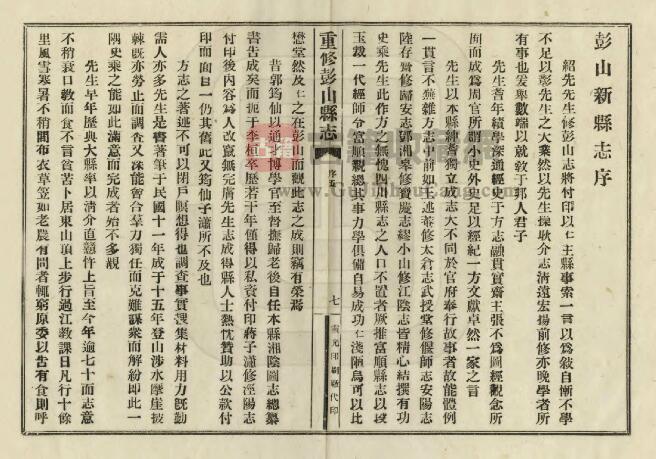 彭山新縣志序
紹先先生修彭山志將付印以仁主縣事索一言以爲敘自慚不學
不足以彰先生之大業然以先生探耿介志清遠宏揚前修亦晚學者所
有事也爰舉數端以就敎于邦人君子
先生昔年績學深通經史于方志融貫實齋主張不爲圖經觀念所
囿而成爲周官所謂小史外史足以經紀一方文獻卓然一家之言
先生以本縣紳耆獨立成志大不同於官府奉行故事者故能體例
一貫言不蕪雜方志中前如王述菴修太倉志武授堂修偃師志安陽志
陸存齋修歸安志鄧湘皋修寶慶志繆小山修江陰志皆精心結撰有功
史乘先生此作方之無愧四川縣志之人口不置者厥推富順縣志以段
玉裁一代經師令富順親總其事力學俱備自易成功仁淺陋烏可以比
懋堂然及仁之在彭山而觀此志之成則竊有榮焉
昔郭筠仙以通才博學官至督撫歸老後自任本縣湘陰圖志總纂
書告成矣而扼于李桓卒歷若干年僅得以私資付印蔣子瀟修涇陽志
付印後內容爲人改竄無完膚先生志成得縣人士熱忱贊助以公款付
印而面目一仍其舊此又筠仙子瀟所不及也
方志之著述不可以閉戶瞑想得也調查事實蒐集材料用力旣勤
需人亦多先生是書著筆于民國十一年成于十五年登山涉水摩崖披
棘旣亦勞止而調查又深能奮合羣力獨任而克難謀衆而解紛卽此一
隅史乘之能如此滿意而完成者殆不多覯
先生早年歷典大縣率以清介直戇忤上旨至今年逾七十而志意
不稍衰口敎而食不言貧苦卜居東山頂上步行過江敎課日凡行十餘
里風雪寒暑不稍間布衣草笠如老農有問者輒窮原委以告有食則呼
重修彭山縣志
序五
七
霽元印刷社代印
古籍
www.GujiShuCang.com